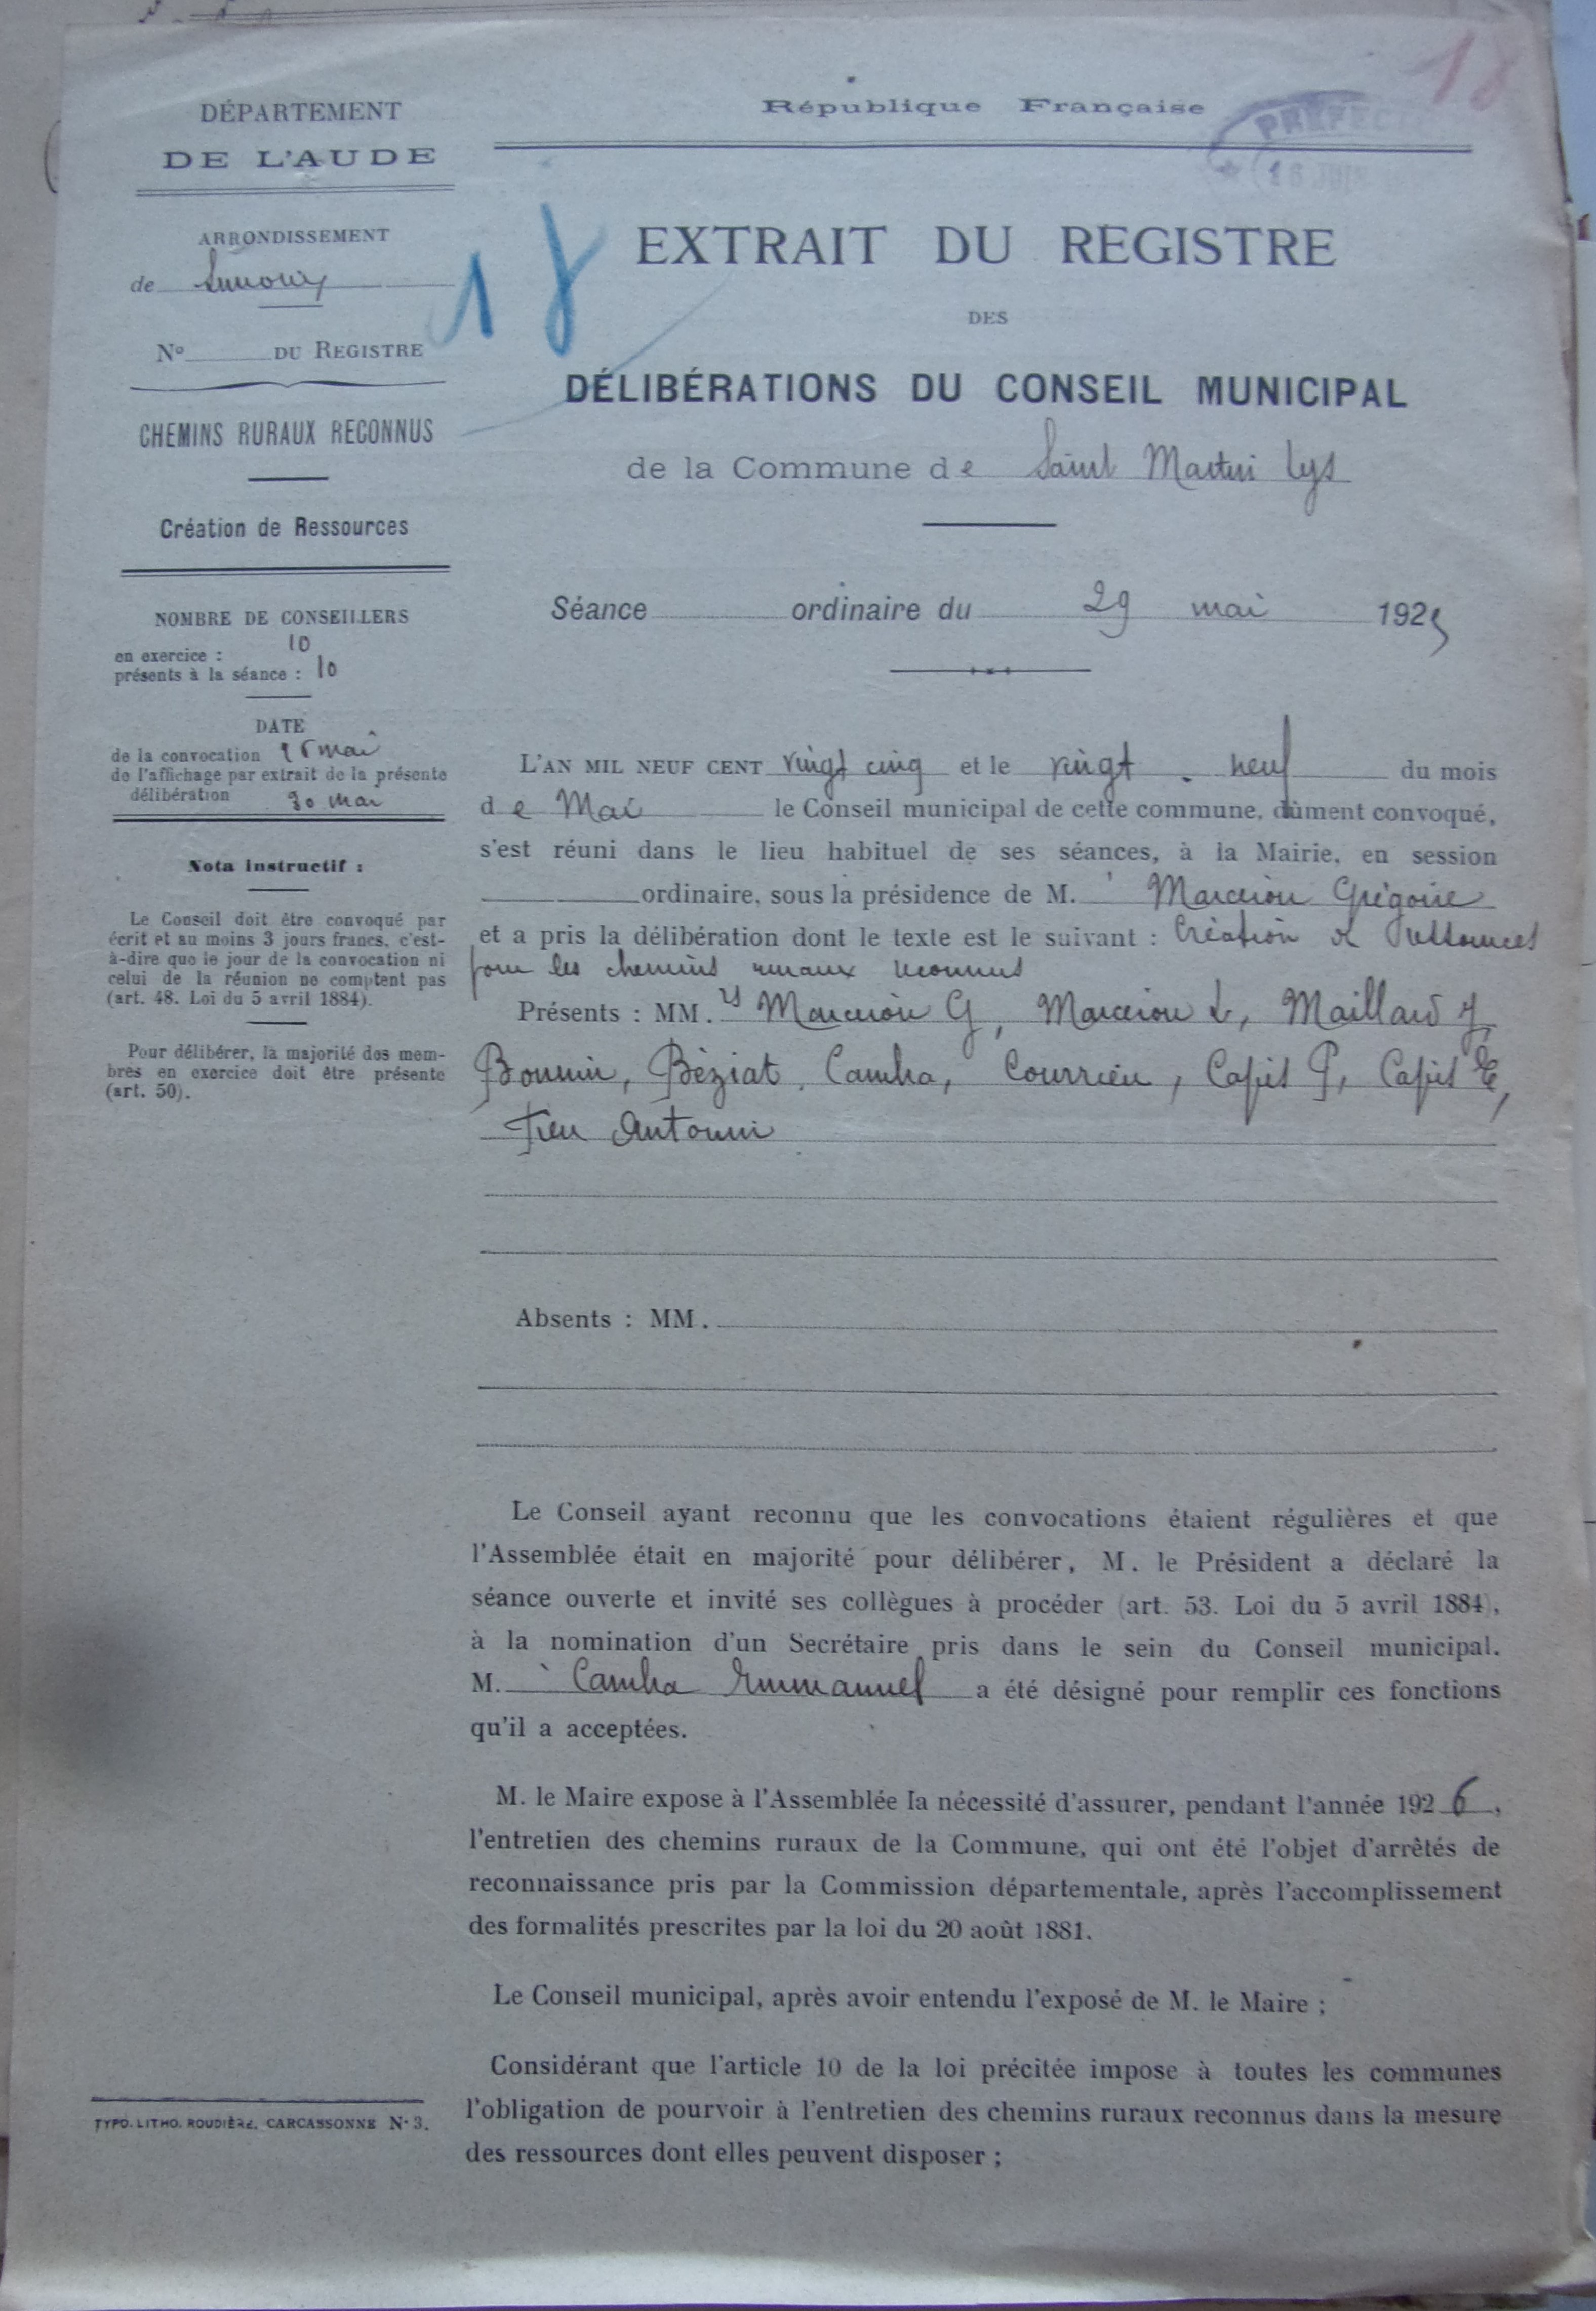 18
DÉPARTEMENT
DE L'AUDE
ARRONDISSEMENT
de Limoux
N° DU REGISTRE
CHEMINS RURAUX RECONNUS
Création de Ressources
NOMBRE DE CONSEILLERS
10
en exercice :
présents à la séance : 10
DATE
de la convocation 25 mai
de l'affichage par extrait de la présente
délibération 30 mai
Nota instructif :
Le Conseil doit être convoqué par
écrit et au moins 3 jours francs, c'est-
à-dire que le jour de la convocation ni
celui de la réunion ne comptent pas
(art. 48. Loi du 5 avril 1884).
Pour délibérer, la majorité des mem-
bres en exercice doit être présente
(art. 50).
TYPO. LITHO. ROUDIÈRE, CARCASSONNE N° 3.
République Française
PRÉFECT
16 JUIN
18
EXTRAIT DU REGISTRE
DES
DÉLIBÉRATIONS DU CONSEIL MUNICIPAL
de la Commune de Saint Martin Lys
Séance ordinaire du 29 mai 1925
L'AN MIL NEUF CENT vingt cinq et le vingt - neuf du mois
de Mai le Conseil municipal de cette commune, dûment convoqué,
s'est réuni dans le lieu habituel de ses séances, à la Mairie, en session
ordinaire, sous la présidence de M. Marcerou Grégoire
et a pris la délibération dont le texte est le suivant : Création de ressources
pour les chemins ruraux reconnus
Présents : MM. Marcerou G, Marcerou L, Maillard J,
Bonnin, Béziat, Courrieu, Capis P, Capis E,
Antonin
Absents : MM.
Le Conseil ayant reconnu que les convocations étaient régulières et que
l'Assemblée était en majorité pour délibérer, M. le Président a déclaré la
séance ouverte et invité ses collègues à procéder (art. 53. Loi du 5 avril 1884),
à la nomination d'un Secrétaire pris dans le sein du Conseil municipal.
M. Emmanuel a été désigné pour remplir ces fonctions
qu'il a acceptées.
M. le Maire expose à l'Assemblée la nécessité d'assurer, pendant l'année 1926,
l'entretien des chemins ruraux de la Commune, qui ont été l'objet d'arrêtés de
reconnaissance pris par la Commission départementale, après l'accomplissement
des formalités prescrites par la loi du 20 août 1881.
Le Conseil municipal, après avoir entendu l'exposé de M. le Maire ;
Considérant que l'article 10 de la loi précitée impose à toutes les communes
l'obligation de pourvoir à l'entretien des chemins ruraux reconnus dans la mesure
des ressources dont elles peuvent disposer ;